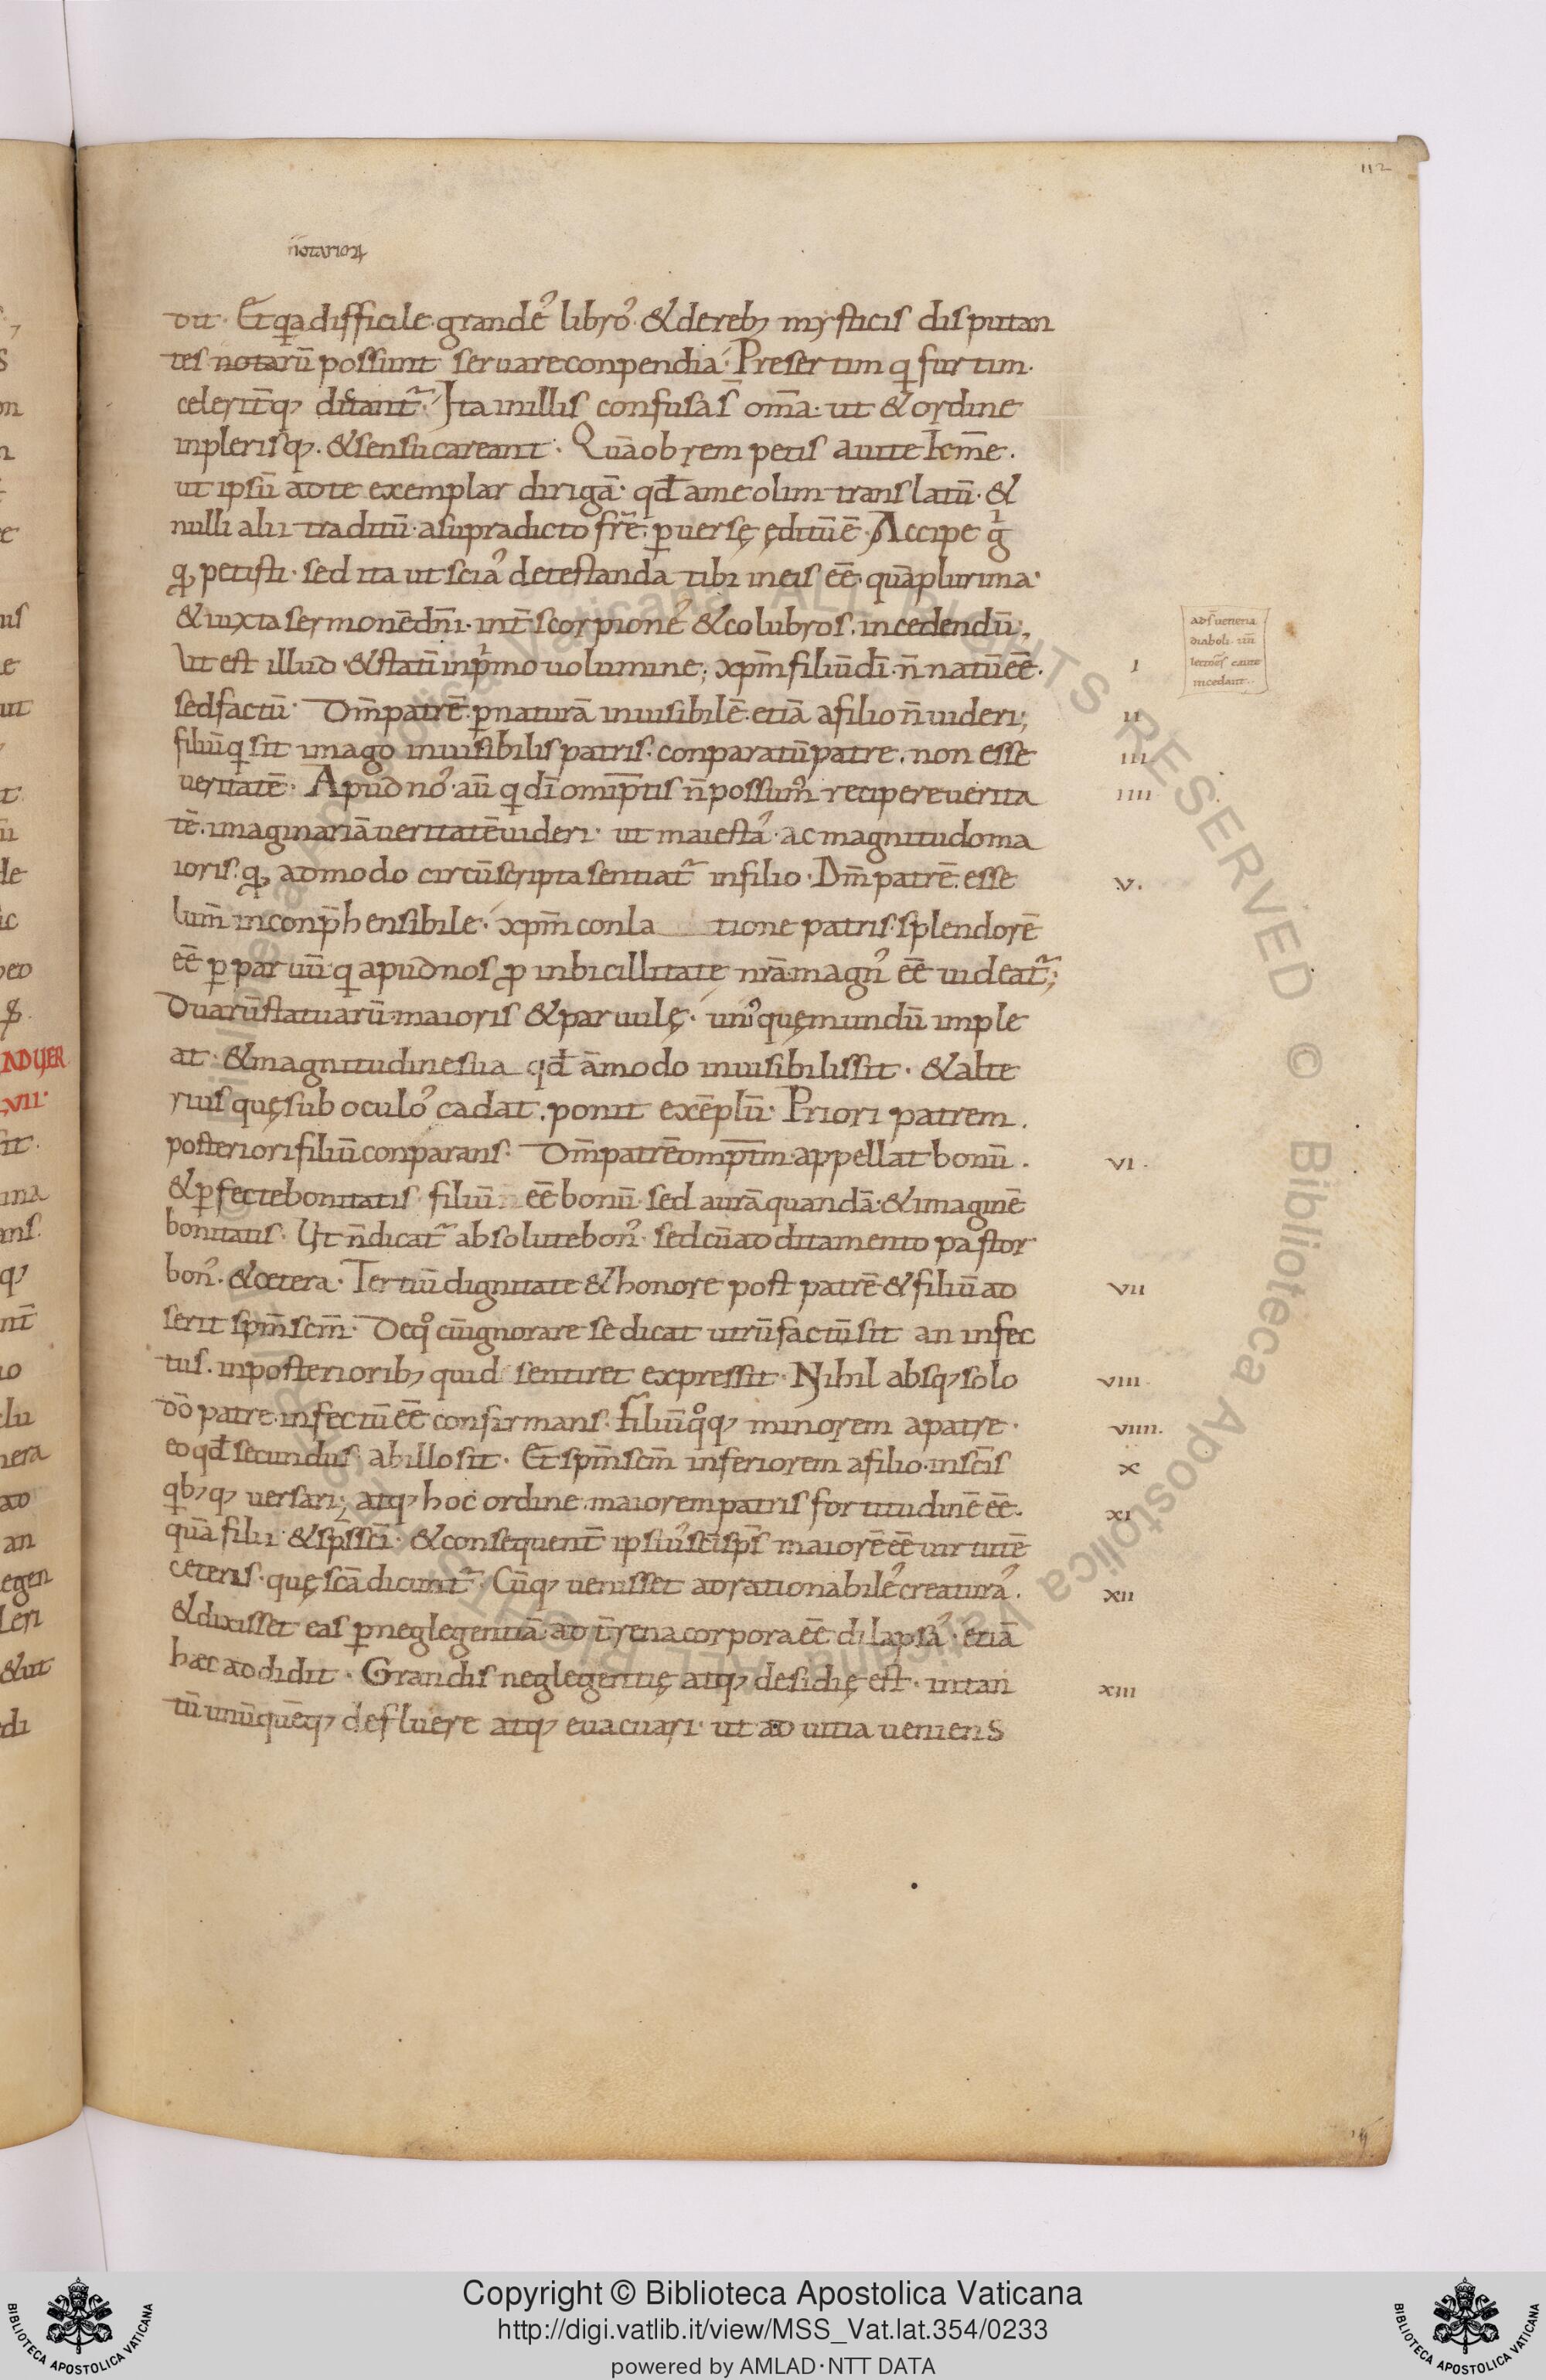 112
notarioꝝ
dit· Et qa difficile· grandeˀ libroˀ· & de reb; mysticis disputan
tes notarū possunt seruare conpendia· Presertim q furtim·
celerit̄q; dictant᷑· Ita in illis confusa s̄ om̄a· ut & ordine
in plerisq;· & sensu careant· Quāobrem petis a uite k̄cm̄e·
ut ipsū ad te exemplar dirigā· qđ a me olim translatū· &
nulli alii traditū· a supradicto fr̄e· ꝑuersę ęditū ē· Accipe gͥ
ꝙ petisti· sed ita ut sciaˀ detestanda tibi in eis eē· quā plurima·
& iuxta sermonē dn̄i· int̄ scorpioneˀ & colubros· incedendū;
Ut est illud· & statī in pͥmo uolumine; xp̄m filiū dī· n̄ natū eē·
sed factū· Dm̄ patrē· ꝑ naturā inuisibilē· etiā a filio n̄ uideri;
filiū q sit imago inuisibilis patris· conparatū patre· non esse
ueritatē· Apud noˀ· aū q dī omip̄tis n̄ possumˀ recipere uerita
tē· imaginariā ueritatē uideri· ut maiestaˀ· ac magnitudo ma
ioris· ꝙ admodo circūscripta sentiat᷑ in filio· Dm̄ patrē· esse
lum̄ inconp̄hensibile· xp̄m conla tione patris· splendorē
eē ꝑ paruū· q apud nos ꝓ inbicillitate nr̄a· magnˀ eē uideat᷑;
Duarū statuarū· maioris & paruulę· uniˀ quę mundū imple
at· & magnitudine sua qđ āmodo inuisibilis sit· & alte
rius quę sub oculoˀ cadat· ponit exēplū· Priori patrem·
posteriori filiū conparans· Dm̄ patrē omp̄tm· appellat bonū·
& ꝑfecte bonitatis· filiū n eē bonū· sed aurā quandā· & imaginē
bonitatis· Ut n̄ dicat᷑ absolute bonˀ· sed cū additamento pastor
bonˀ· & cetera· Tertiū dignitate & honore post patrē & filiū ad
serit sp̄m scm̄· De qͦ cū ignorare se dicat utrū factū sit an infec
tus· in posteriorib; quid sentiret expressit· Nihil absq; solo
dō patre· infectū eē confirmans· filiū qͦq; minorem a patre·
eo qđ secundus ab illo sit· Et sp̄m scm̄ inferiorem a filio· in sc̄is
qb;q; uersari; atq; hoc ordine· maiorem patris fortitudinē eē·
quā filii· & sp̄s sc̄i· & consequent̄ ipsiuˀ sc̄i sp̄s maiorē eē uirtutē
ceteris· quę sc̄a dicunt᷑· Cūq; uenisset ad rationabileˀ creaturaˀ·
& dixisset eas ꝑ neglegentiā· ad t̄rena corpora eē dilapsaˀ· etiā
hæc addidit· Grandis neglegentię atq; desidię est· in tan
tū unūquēq; defluere atq; euacuari· ut ad uitia ueniens
ads̄ uenena
diaboli· ut̄
lectoēs caute
incedant·
I
II
III
IIII
V·
VI·
VII
VIII
VIIII·
X
XI
XII
XIII
ADUER
VII·
Copyright © Biblioteca Apostolica Vaticana
http://digi.vatlib.it/view/MSS_Vat.lat.354/0233
powered by AMLAD·NTT DATA
BIBLIOTECA APOSTOLICA VATICANA
BIBLIOTECA APOSTOLICA VATICANA